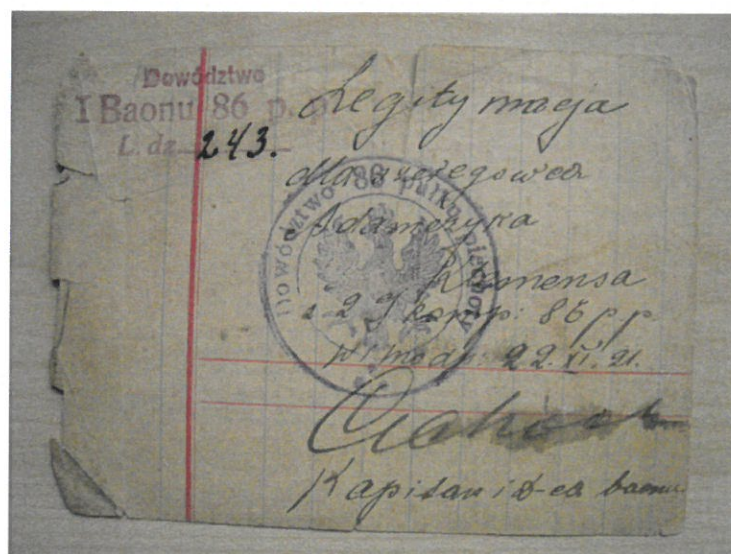 Dowództwo
I Baonu 86 p. p.
L. dz. 243.
Legitymacja
dla szeregowca
Adamczyka
Klemensa
z 2 j komp: 86 p.p.
22.VI.21.
Kapitan i d-ca baonu
Dowództwo 86 pułku piechoty